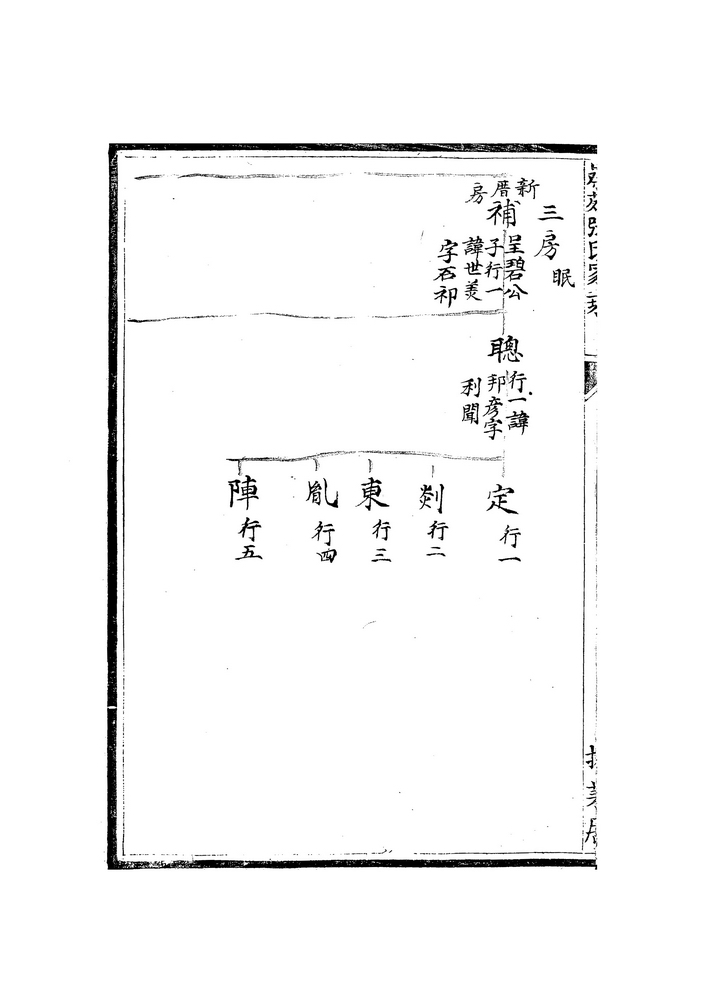 三房眠
新厝房
補
呈碧公
子行一
諱世羙
字石祁
聰
行一諱
邦彥字
利聞
定
行一
剡
行二
東
行三
胤
行四
陣
行五